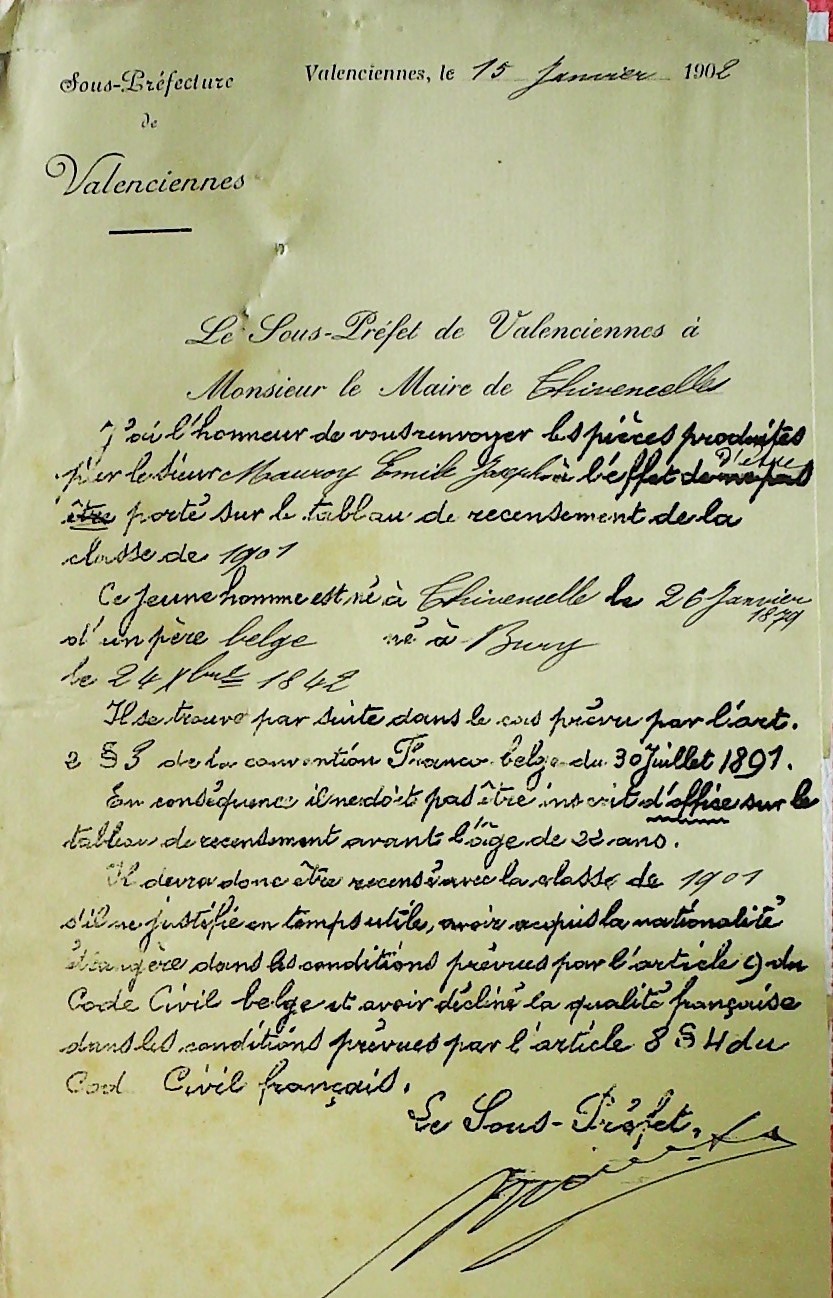 Sous-Préfecture
de
Valenciennes
Valenciennes, le 15 Janvier 1902
Le Sous-Préfet de Valenciennes à
Monsieur le Maire de Thivencelles
J'ai l'honneur de vous renvoyer les pièces produites
par le sieur Mauroy Emile Joseph à l'effet de ne pas d'être
être porté sur le tableau de recensement de la
classe de 1901
Ce jeune homme est né à Thivencelle le 26 Janvier
1879
d'un père belge né à Bury
le 24 Xbre 1842
Il se trouve par suite dans le cas prévu par l'art.
2 § 3 de la convention Franco-belge du 30 Juillet 1891.
En conséquence il ne doit pas être inscrit d'office sur le
tableau de recensement avant l'âge de 22 ans.
Il devra donc être recensé avec la classe de 1901
s'il ne justifie en temps utile, avoir acquis la nationalité
étrangère dans les conditions prévues par l'article 9 du
Code Civil belge et avoir décliné la qualité française
dans les conditions prévues par l'article 8 § 4 du
Cod Civil français.
Le Sous-Préfet,